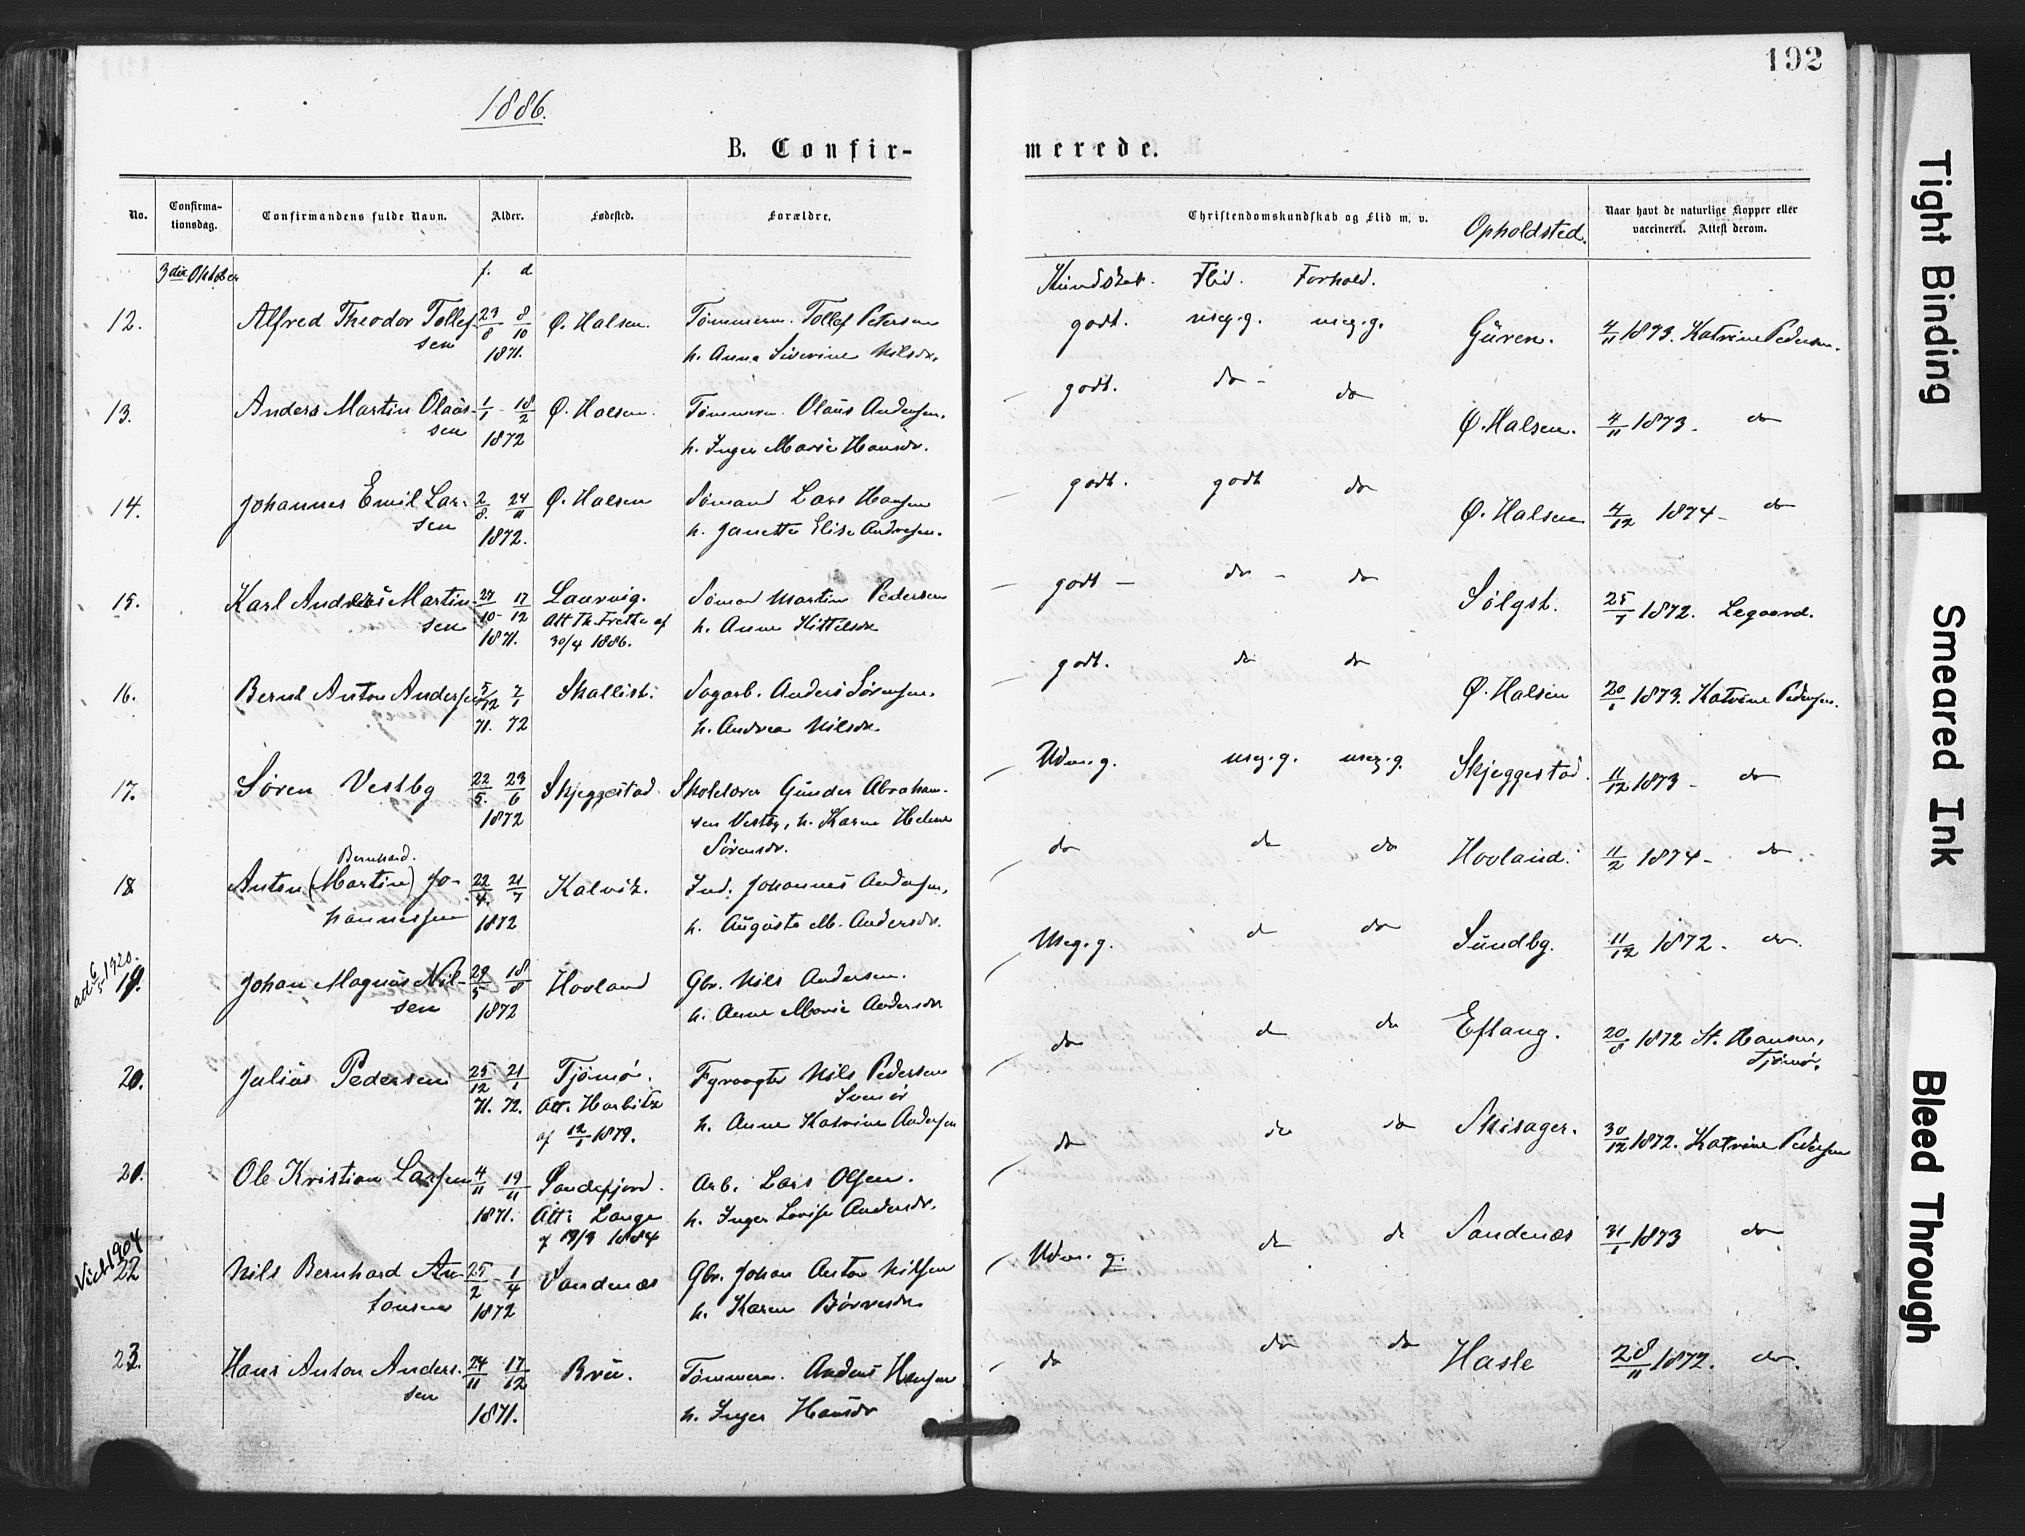 192
1886.
B. Confir-
merede.
No.
Confirma-
tionsdag.
Confirmandens fulde Navn.
Alder.
Fødested.
Forældre.
Christendomskundskab og Flid m. v.
Opholdsted.
Naar havt de naturlige Kopper eller
vaccineret. Attest derom.
3die Oktober
f. d
Kundskab. Flid. Forhold.
12. Alfred Theodor Tollef- 23/8 8/10 Ø. Halsen. Tømmerm. Tollef Petersen godt. meg. g. meg. g. Guren. 4/11 1873. Katrine Pedersen.
sen 1871. h. Anna Siverine Nilsdr.
13. Anders Martin Olaus- 1/1 - 18/2 Ø. Halsen. Tømmerm. Olaus Andersen. godt. do - do Ø. Halsen. 4/11 1873. do
sen 1872 h. Inger Marie Hansdr.
14. Johannes Emil Lar- 2/8. 24/11 Ø. Halsen Sømand Lars Hansen godt. godt do Ø. Halsen 4/12 1874 - do
sen 1872. h. Janette Elise Andresen.
15. Karl Andreas Martin- 27/10 - 17/12 Laurvig. Sømand Martin Pedersen godt - do - do Sølgst. 25/7 1872. Legaard.
sen 1871. Att Th. Frette af h. Anne Kittelsdr
30/4 1886.
16. Bernt Anton Andersen 5/12 7/1 Skallist. Sagarb. Anders Sørensen. godt. do do Ø. Halsen 20/1 1873. Katrine Pedersen.
71. 72 h. Andrea Nilsdr
17. Søren Vestby 22/5. 23/6 Skjeggestad. Skolelærer Gunder Abraham- Udm. g. meg. g. meg. g. Skjeggestad. 11/12 1873 - do
1872 sen Vestby, h. Karen Helene
Sørensdr.
Bernhard.
18 Anton (Martin) Jo- 22/4. 21/7 Kalvik. Ind. Johannes Andersen, do do do Hovland. 11/2 1874 - do
hannessen 1872 h. Auguste M. Andersdr.
att. 6/5 1920.
19. Johan Magnus Nil- 29/5 18/8 Hovland Gbr. Nils Andersen. Meg. g. do do Sundby. 11/12 1872 - do.
sen 1872 h. Anne Marie Andersdr
20. Julius Pedersen 25/12 21/1 Tjømø. Fyrvogter Nils Pedersen do do do Eftang. 20/8 1872 St. Hansen,
71. 72. Att. Harbitz Svenør Tjømø.
af 12/1 1879. h. Anne Katrine Andersen
21. Ole Kristian Larsen 4/11 19/11 Sandefjord. Arb. Lars Olsen. do do do Skisager. 30/12 1872. Katrine Pedersen
1871. Att: Lange h. Inger Lovise Andersdr.
f 19/3 1884
Vielt 1904
22 Nils Bernhard An- 25/2 - 1/4 Sandenæs Gbr. Johan Anton Nilsen Udm. g. do do Sandenæs 31/1 1873 do
tonsen 1872 h. Karen Børresdr.
23. Hans Anton Anders- 24/11 17/12 Breu. Tømmerm. Anders Hansen do do do Hasle 28/11 1872. do.
sen 1871. h. Inger Hansdr
Tight Binding
Smeared Ink
Bleed Through